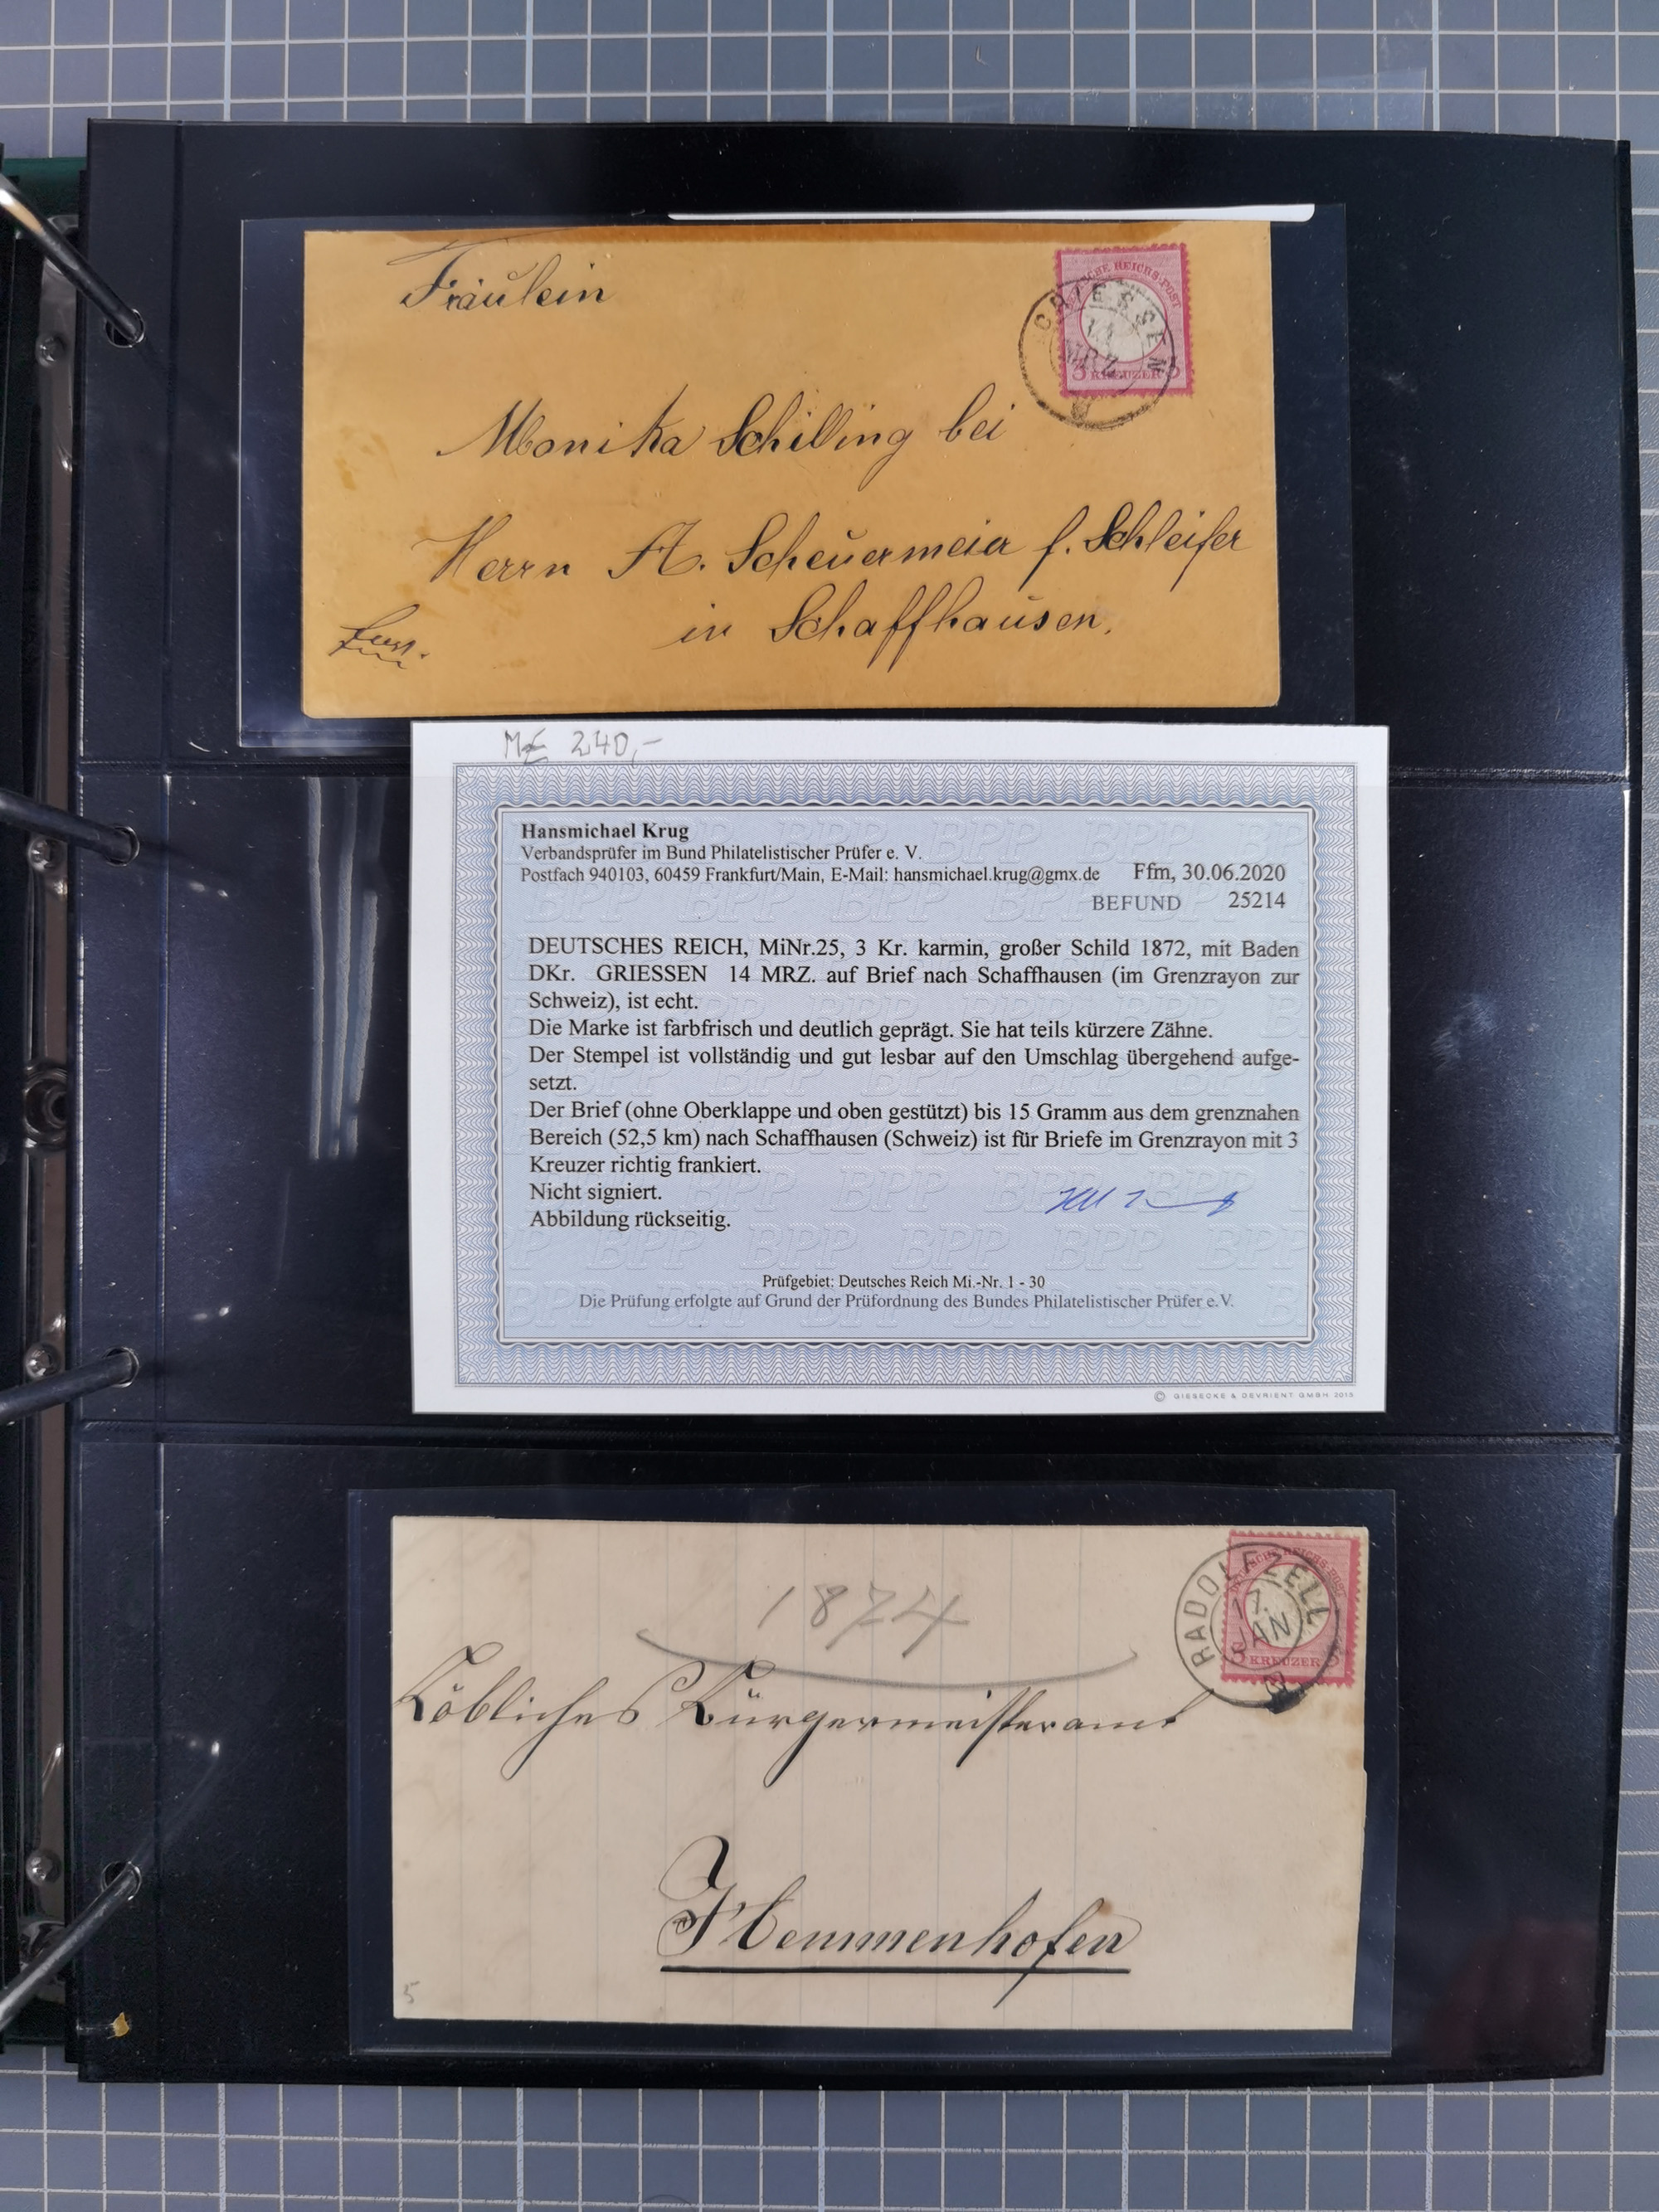 Fräulein
DEUTSCHE REICHS-POST
GRIESSEN
14
MRZ
3 KREUZER 3
Monika Schilling bei
Herrn A. Scheuermeier f. Schleifer
in Schaffhausen.
M€ 240,-
Hansmichael Krug
Verbandsprüfer im Bund Philatelistischer Prüfer e. V.
Postfach 940103, 60459 Frankfurt/Main, E-Mail: hansmichael.krug@gmx.de Ffm, 30.06.2020
BEFUND 25214
DEUTSCHES REICH, MiNr.25, 3 Kr. karmin, großer Schild 1872, mit Baden
DKr. GRIESSEN 14 MRZ. auf Brief nach Schaffhausen (im Grenzrayon zur
Schweiz), ist echt.
Die Marke ist farbfrisch und deutlich geprägt. Sie hat teils kürzere Zähne.
Der Stempel ist vollständig und gut lesbar auf den Umschlag übergehend aufge-
setzt.
Der Brief (ohne Oberklappe und oben gestützt) bis 15 Gramm aus dem grenznahen
Bereich (52,5 km) nach Schaffhausen (Schweiz) ist für Briefe im Grenzrayon mit 3
Kreuzer richtig frankiert.
Nicht signiert.
Abbildung rückseitig.
Prüfgebiet: Deutsches Reich Mi.-Nr. 1 - 30
Die Prüfung erfolgte auf Grund der Prüfordnung des Bundes Philatelistischer Prüfer e.V.
© GIESECKE & DEVRIENT GMBH 2015
DEUTSCHE REICHS-POST
RADOLFZELL
17.
JAN
3 KREUZER 3
1874
Löbliches Bürgermeisteramt
Hemmenhofen
5